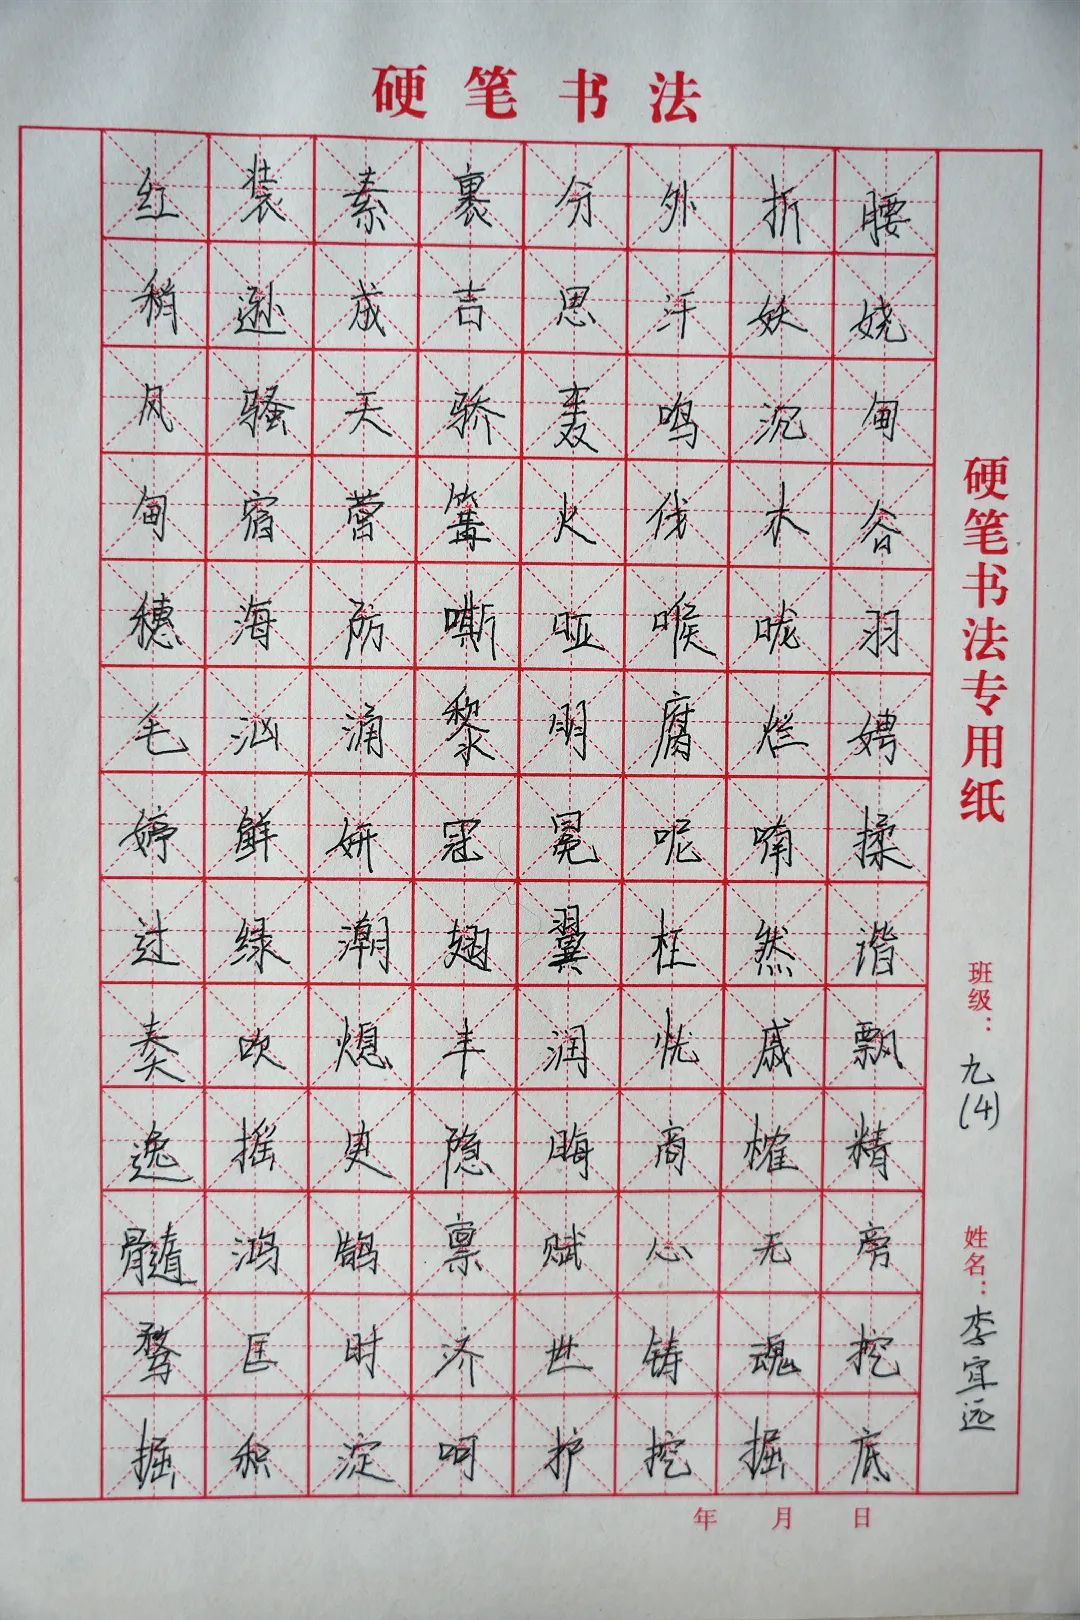 硬笔书法
红装素裹分外折腰
稍逊成吉思汗妖娆
风骚天骄轰鸣沉甸
甸宿营篝火伐木谷
穗海防嘶哑喉咙羽
毛汹涌黎明腐烂娉
婷鲜妍冠冕呢喃揉
过绿潮翅翼枉然谐
奏吹熄丰润恍戚飘
逸摇史隐晦商榷精
髓鸿鹄禀赋心无旁
骛匡时济世铸魂挖
掘积淀呵护挖掘底
硬笔书法专用纸
班级：九(4)
姓名：李宜远
年 月 日